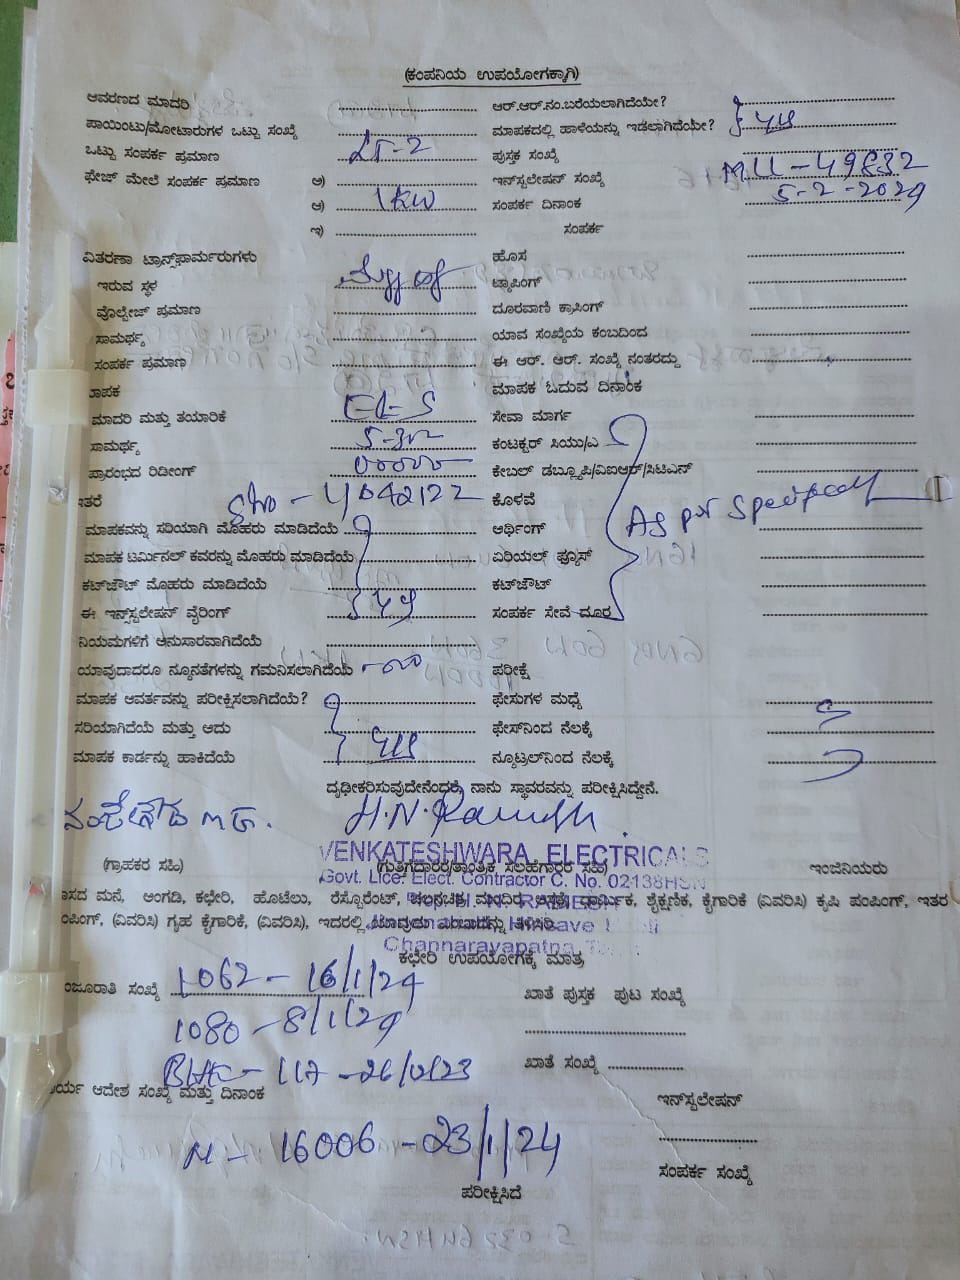 (ಕಂಪನಿಯ ಉಪಯೋಗಕ್ಕಾಗಿ)
ಆವರಣದ ಮಾದರಿ ಆರ್.ಆರ್.ನಂ.ಬರೆಯಲಾಗಿದೆಯೇ?
ಪಾಯಿಂಟು/ಮೋಟಾರುಗಳ ಒಟ್ಟು ಸಂಖ್ಯೆ ಮಾಪಕದಲ್ಲಿ ಹಾಳೆಯನ್ನು ಇಡಲಾಗಿದೆಯೇ?
ಒಟ್ಟು ಸಂಪರ್ಕ ಪ್ರಮಾಣ LT-2 ಪುಸ್ತಕ ಸಂಖ್ಯೆ
ಫೇಜ್ ಮೇಲೆ ಸಂಪರ್ಕ ಪ್ರಮಾಣ ಅ) ಇನ್‌ಸ್ಟಲೇಷನ್ ಸಂಖ್ಯೆ MLL-49832
ಆ) 1KW ಸಂಪರ್ಕ ದಿನಾಂಕ 5-2-2024
ಇ) ಸಂಪರ್ಕ
ವಿತರಣಾ ಟ್ರಾನ್ಸ್‌ಫಾರ್ಮರುಗಳು ಹೊಸ
ಇರುವ ಸ್ಥಳ ಟ್ಯಾಪಿಂಗ್
ವೊಲ್ಟೇಜ್ ಪ್ರಮಾಣ ದೂರವಾಣಿ ಕ್ರಾಸಿಂಗ್
ಸಾಮರ್ಥ್ಯ ಯಾವ ಸಂಖ್ಯೆಯ ಕಂಬದಿಂದ
ಸಂಪರ್ಕ ಪ್ರಮಾಣ ಈ ಆರ್. ಆರ್. ಸಂಖ್ಯೆ ನಂತರದ್ದು
ಾಪಕ ಮಾಪಕ ಓದುವ ದಿನಾಂಕ
ಮಾದರಿ ಮತ್ತು ತಯಾರಿಕೆ ಸೇವಾ ಮಾರ್ಗ
ಸಾಮರ್ಥ್ಯ 5-30 ಕಂಟಕ್ಟರ್ ಸಿಯು/ಎ
ಪ್ರಾರಂಭದ ರಿಡೀಂಗ್ 00000 ಕೇಬಲ್ ಡಬ್ಲ್ಯೂಪಿ/ವಿಐಆರ್/ಸಿಟಿಎಸ್
ಇತರೆ SNo - 4042122 ಕೊಳವೆ
ಮಾಪಕವನ್ನು ಸರಿಯಾಗಿ ಮೊಹರು ಮಾಡಿದೆಯೆ ಅರ್ಥಿಂಗ್ As per
ಮಾಪಕ ಟರ್ಮಿನಲ್ ಕವರನ್ನು ಮೊಹರು ಮಾಡಿದೆಯೆ ಏರಿಯಲ್ ಫ್ಯೂಸ್
ಕಟ್‌ಔಟ್ ಮೊಹರು ಮಾಡಿದೆಯೆ ಕಟ್‌ಔಟ್
ಈ ಇನ್ಸ್ಟಲೇಷನ್ ವೈರಿಂಗ್ ಸಂಪರ್ಕ ಸೇವೆ ದೂರ
ನಿಯಮಗಳಿಗೆ ಅನುಸಾರವಾಗಿದೆಯೆ
ಯಾವುದಾದರೂ ನ್ಯೂನತೆಗಳನ್ನು ಗಮನಿಸಲಾಗಿದೆಯೆ ಪರೀಕ್ಷೆ
ಮಾಪಕ ಆವರ್ತವನ್ನು ಪರೀಕ್ಷಿಸಲಾಗಿದೆಯೆ? ಫೇಸುಗಳ ಮಧ್ಯೆ
ಸರಿಯಾಗಿದೆಯೆ ಮತ್ತು ಅದು ಫೇಸ್‌ನಿಂದ ನೆಲಕ್ಕೆ
ಮಾಪಕ ಕಾರ್ಡನ್ನು ಹಾಕಿದೆಯೆ ನ್ಯೂಟ್ರಲ್‌ನಿಂದ ನೆಲಕ್ಕೆ
ದೃಢೀಕರಿಸುವುದೇನೆಂದರೆ, ನಾನು ಸ್ಥಾವರವನ್ನು ಪರೀಕ್ಷಿಸಿದ್ದೇನೆ.
H.N. Ramesh.
VENKATESHWARA ELECTRICALS
(ಗ್ರಾಹಕರ ಸಹಿ) (ಗುತ್ತಿಗೆದಾರರ/ತಾಂತ್ರಿಕ ಸಲಹೆಗಾರರ ಸಹಿ) ಇಂಜಿನಿಯರು
Govt. Lice. Elect. Contractor C. No. 02138HSN
ಾಸದ ಮನೆ, ಅಂಗಡಿ, ಕಛೇರಿ, ಹೊಟೇಲು, ರೆಸ್ಟೊರೆಂಟ್, ಧಾರ್ಮಿಕ, ಶೈಕ್ಷಣಿಕ, ಕೈಗಾರಿಕೆ (ವಿವರಿಸಿ) ಕೃಷಿ ಪಂಪಿಂಗ್, ಇತರ
ಂಪಿಂಗ್, (ವಿವರಿಸಿ) ಗೃಹ ಕೈಗಾರಿಕೆ, (ವಿವರಿಸಿ), ಇದರಲ್ಲಿ ಯಾವುದು ಎಂಬುದನ್ನು ತಿಳಿಸಿರಿ.
Channarayapatna
ಕಛೇರಿ ಉಪಯೋಗಕ್ಕೆ ಮಾತ್ರ
ಂಜೂರಾತಿ ಸಂಖ್ಯೆ 1062 - 16/1/24 ಖಾತೆ ಪುಸ್ತಕ ಪುಟ ಸಂಖ್ಯೆ
1080 - 8/1/24
117 - 26/ ಖಾತೆ ಸಂಖ್ಯೆ
ರ್ಯ ಆದೇಶ ಸಂಖ್ಯೆ ಮತ್ತು ದಿನಾಂಕ ಇನ್‌ಸ್ಟಲೇಷನ್
16006 - 23/1/24
ಸಂಪರ್ಕ ಸಂಖ್ಯೆ
ಪರೀಕ್ಷಿಸಿದೆ